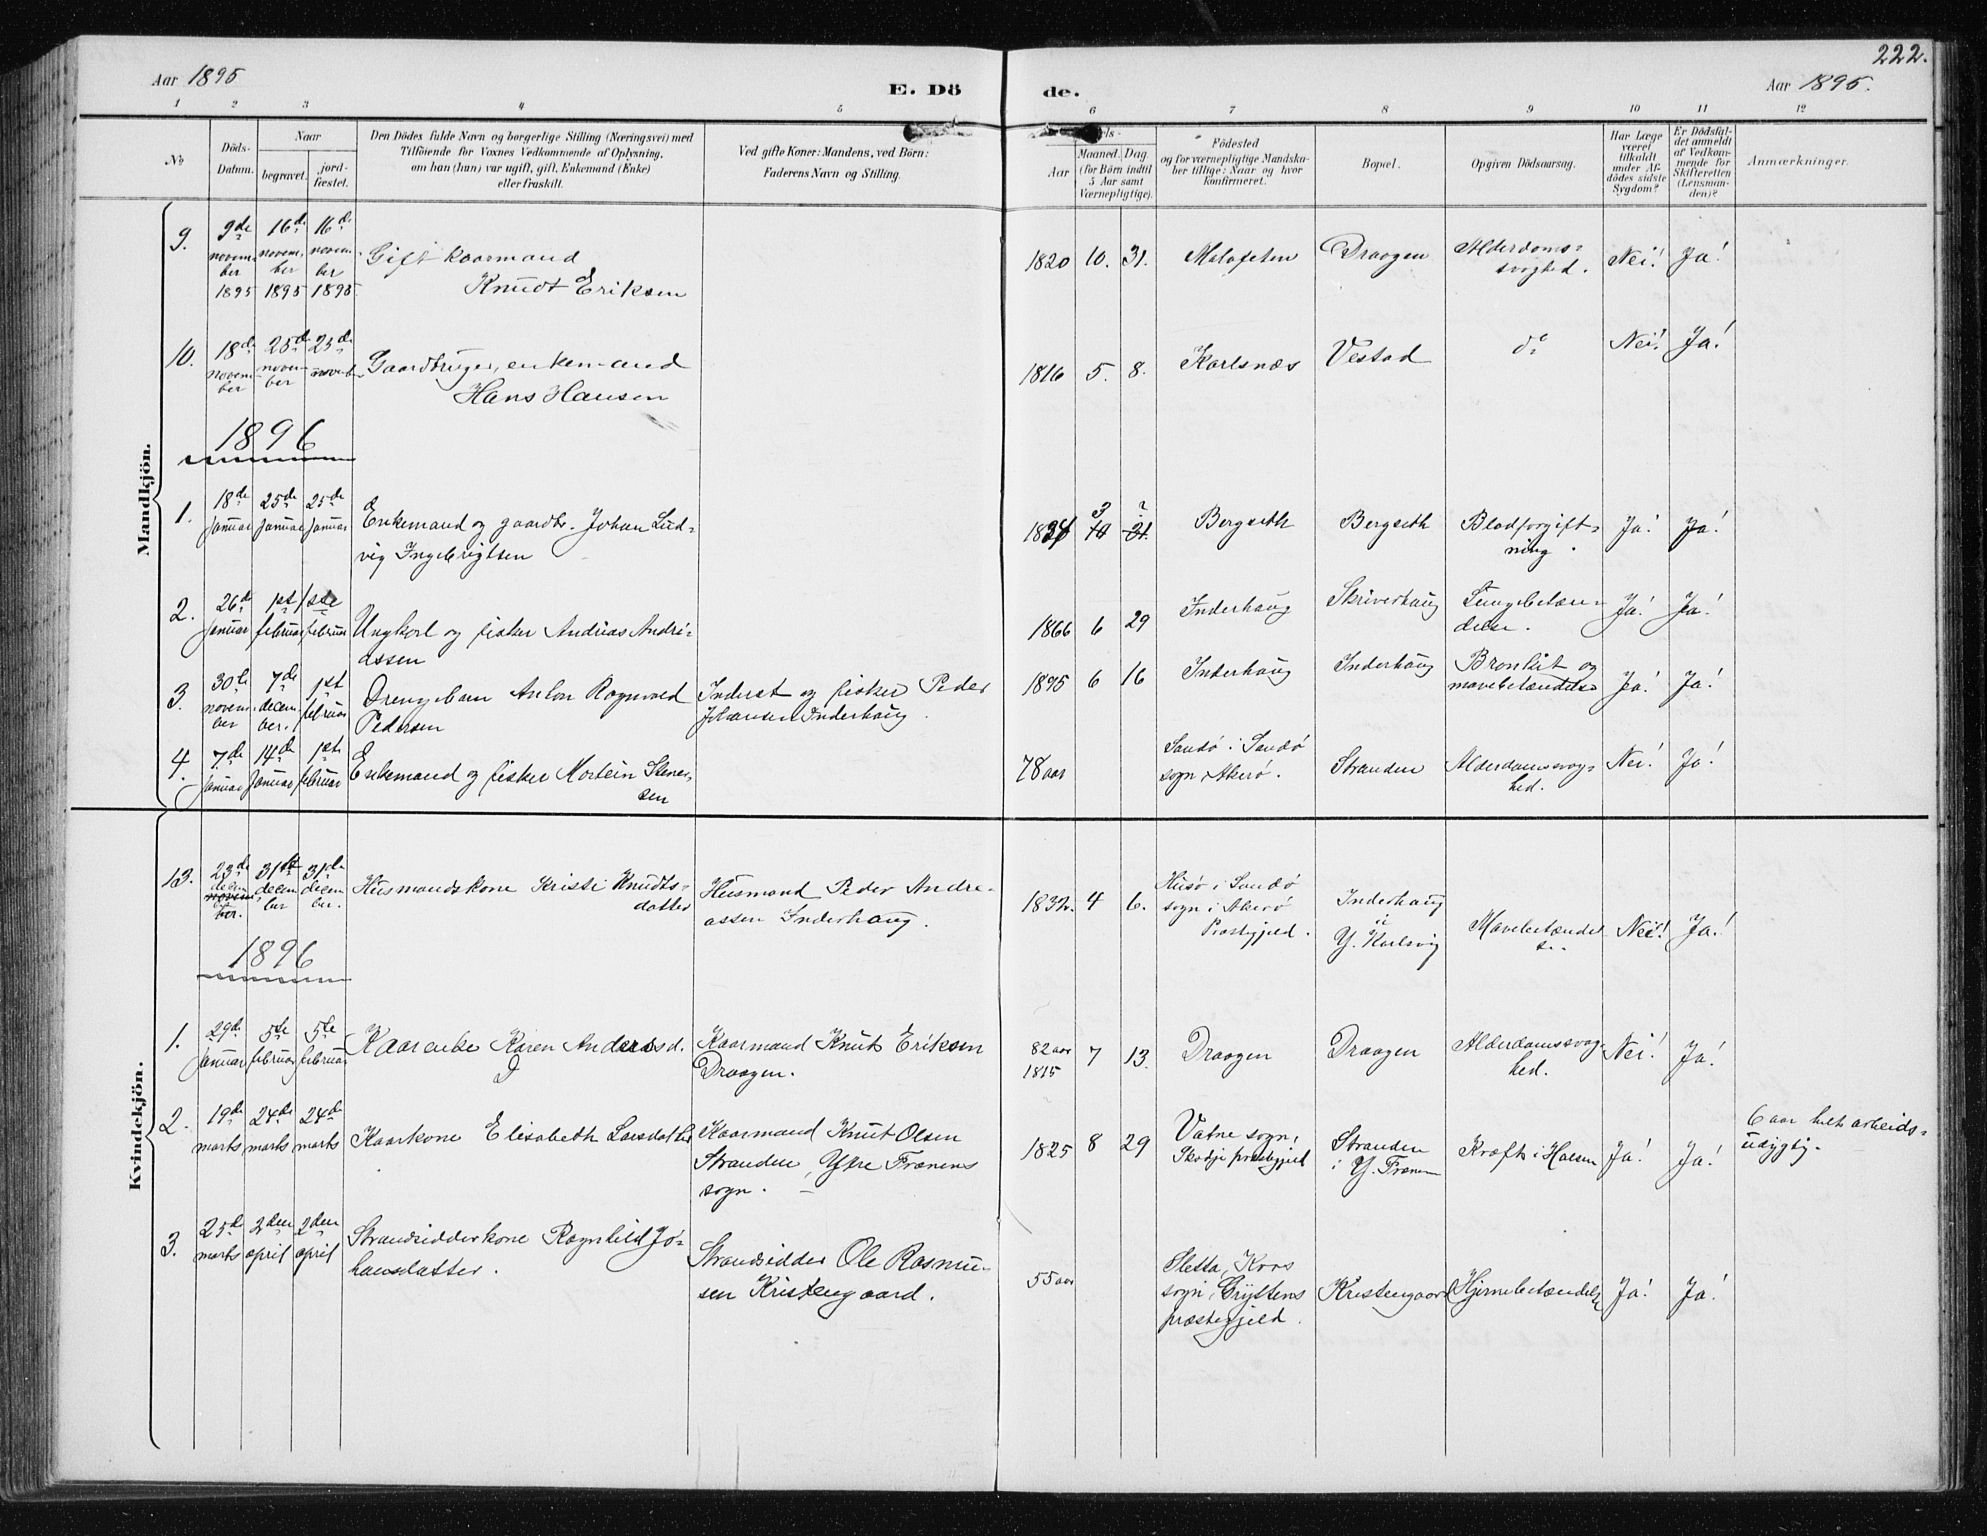 222.
Aar 1895
E. Dö
de.
Aar 1895.
1 2 3 4 5 6 7 8 9 10 11 12
No
Döds-
Datum.
Naar
begravet.
jord-
fæstet.
Den Dödes fulde Navn og borgerlige Stilling (Næringsvei) med
Tilföiende for Voxnes Vedkommende af Oplysning,
om han (hun) var ugift, gift, Enkemand (Enke)
eller fraskilt.
Ved gifte Koner: Mandens, ved Börn:
Faderens Navn og Stilling.
els-
Aar
Maaned. Dag
(for Börn indtil
5 Aar samt
Værnepligtige).
Födested
og for værnepligtige Mandska-
ber tillige: Naar og hvor
konfirmeret.
Bopæl.
Opgiven Dödsaarsag.
Har Læge
været
tilkaldt
under Af-
dödes sidste
Sygdom?
Er Dödsfal-
det anmeldt
af Vedkom-
mende for
Skifteretten
(Lensman-
den)?
Anmærkninger.
Mandkjön.
9.
9de
novem-
ber
1895
16d.
novem-
ber
1895
16d.
novem-
ber
1895
Gift kaarmand
Knudt Eriksen
1820 10. 31. Malefeten Draagen Alderdoms-
svaghed. Nei! Ja!
10.
18de
novem-
ber
25de
novem-
ber
25de
novemb.
Gaardbruger, enkemand
Hans Hansen
1816 5. 8. Karlsnæs Vestad do Nei! Ja!
1896
1.
18de
januar
25de
januar
25de
januar
Enkemand og gaardbr. Johan Lud-
vig Ingebrigtsen
3 Bergseth Bergseth Blodforgift-
ning. Ja! Ja!
2.
26d.
januar
1st
februar
1ste
februar
Ungkarl og fisker Andreas Andre-
assen
1866 6 29 Inderhaug Skriverhaug Lungebetæn-
delse. Ja! Ja!
3.
30te
novem-
ber
7de
decem-
ber.
1st
februar
Drengebarn Anton Ragnvald
Pedersen
Inderst og fisker Peder
Johansen Inderhaug.
1895 6 16 Inderhaug Inderhaug Bronkit og
mavebetændelse Ja! Ja!
4.
7de
januar
14de
januar
1st.
februar
Enkemand og fisker Mortein Stener-
sen
78 aar Sandö i Sandö
sogn, Akerö. Stranden Alderdomssvag-
hed. Nei! Ja!
Kvindekjön.
13.
23de
decem
novem-
ber.
31te
decem
ber
31de
decem
ber.
Husmandskone Kristi Knudts-
datter
Husmand Peder Andre-
assen Inderhaug.
1832. 4 6. Husö i Sandö
sogn i Akerö
Prestegjeld. Inderhaug
i
Y. Karlsvig Mavebetændel-
se. Nei! Ja!
1896
1.
29de
januar
5te
februar
5te
februar
Kaarenke Karen Andersd.
Kaarmand Knut Eriksen
Draagen.
82 aar
1815 7 13. Draagen Draagen Alderdomssvag-
hed. Nei! Ja!
2.
19de
marts
24de
marts
24de
marts
Kaarkone Elisabeth Larsdatter
Kaarmand Knut Olsen
Stranden, Ytre Frænens
sogn.
1825 8 29 Vatne sogn,
Skodje prestegjeld Stranden
i Y. Frænen Kræft i Halsen Ja! Ja! 6 aar helt arbeids-
udygtig.
3.
25de
marts
2den
april
2den
april
Strandsidderkone Ragnhild Jo-
hansdatter.
Strandsidder Ole Rasmu-
sen Kristengaard.
55 aar Sletta, Kors
sogn, Gryttens
præstegjeld. Kristengaard Hjernebetændelse Ja! Ja!